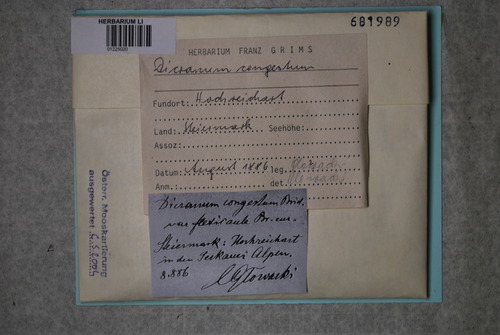 HERBARIUM LI
681989
HERBARIUM FRANZ GRIMS
Dicranum congestum
Fundort: Hochreichart
Land: Steiermark Seehöhe:
Assoz:
Datum: August 1886 leg.
Anm.: det.
Österr. Mooskartierung
ausgewertet
Dicranum congestum Brid.
var flexicaule Br. eur.
Steiermark: Hochreichart
in den Seckauer Alpen.
8.886